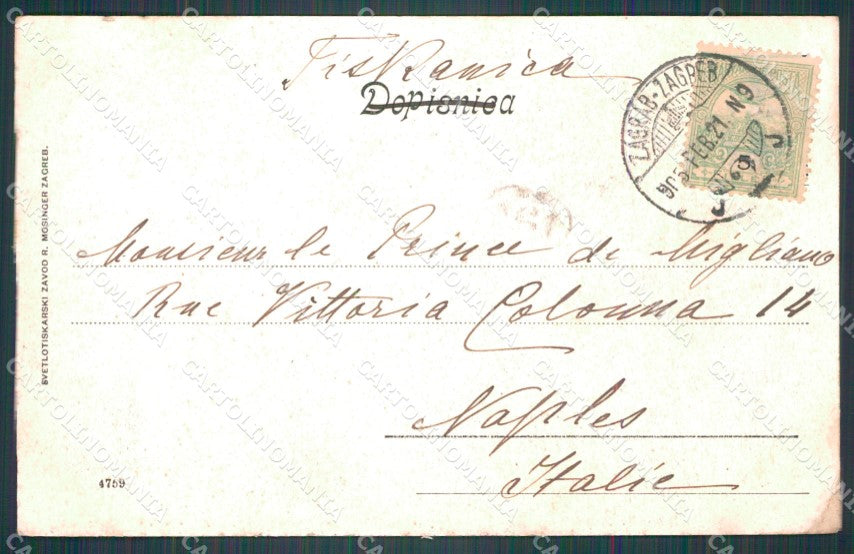 Tiskanica
Dopisnica
ZAGRAB-ZAGREB
905 FEB. 21 N9
Monsieur le Prince de Migliano
Rue Vittoria Colonna 14
Naples
Italie
SVETLOTISKARSKI ZAVOD R. MOSINGER ZAGREB.
4759
CARTOLINOMANIA